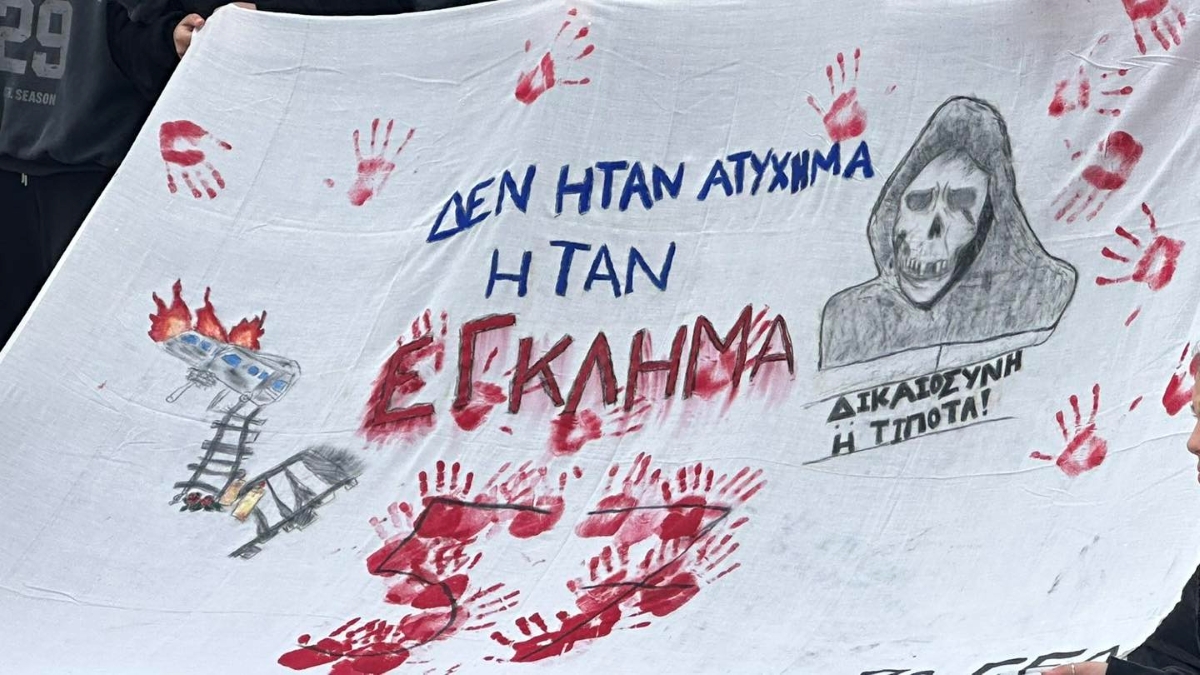 29
SEASON
ΔΕΝ ΗΤΑΝ ΑΤΥΧΗΜΑ
ΗΤΑΝ
ΕΓΚΛΗΜΑ
ΔΙΚΑΙΟΣΥΝΗ
Η ΤΙΠΟΤΑ!
57